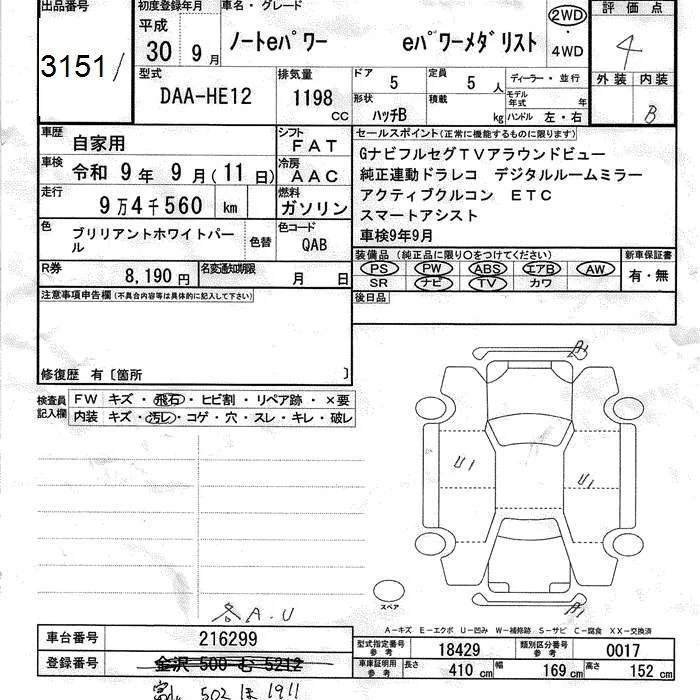 出品番号 初度登録年月 車名 ・ グレード 評 価 点
3151/ 平成 30 年 9 月 ノートeパワー eパワーメダリスト 2WD ・ 4WD 4
型式 DAA-HE12 排気量 1198 CC ドア 5 定員 5 人 ディーラー ・ 並行 外 装 内 装
形状 ハッチB 積載 kg モデル年式 年 ハンドル 左 ・ 右 B
車歴 自家用 シフト FAT セールスポイント(正常に機能するものに限ります)
車検 令和 9 年 9 月 ( 11 日) 冷房 AAC GナビフルセグTVアラウンドビュー
純正連動ドラレコ デジタルルームミラー
走行 9 万 4 千 560 km 燃料 ガソリン アクティブクルコン ETC
スマートアシスト
色 ブリリアントホワイトパール 色替 色コード QAB 車検9年9月
装備品 (純正品に限り〇をつけてください) 新車保証書
R券 8,190 円 名変通知期限 月 日 PS PW ABS エアB AW 有・無
SR ナビ TV カワ
注意事項申告欄(不具合内容等は具体的に記入して下さい) 後日品
修復歴 有〔箇所 〕
検査員記入欄 FW キズ ・ 飛石 ・ ヒビ割 ・ リペア跡 ・ ×要
内装 キズ ・ 汚レ ・ コゲ ・ 穴 ・ スレ ・ キレ ・ 破レ
A1
U1 U1
スペア A1
各A.U
A-キズ E-エクボ U-凹み W-補修跡 S-サビ C-腐食 XX-交換済
車台番号 216299 型式指定番号 参考 18429 類別区分番号 参考 0017
登録番号 金沢 500 む 5212 車庫証明用 参考 長さ 410 cm 幅 169 cm 高さ 152 cm
502 ほ 1911